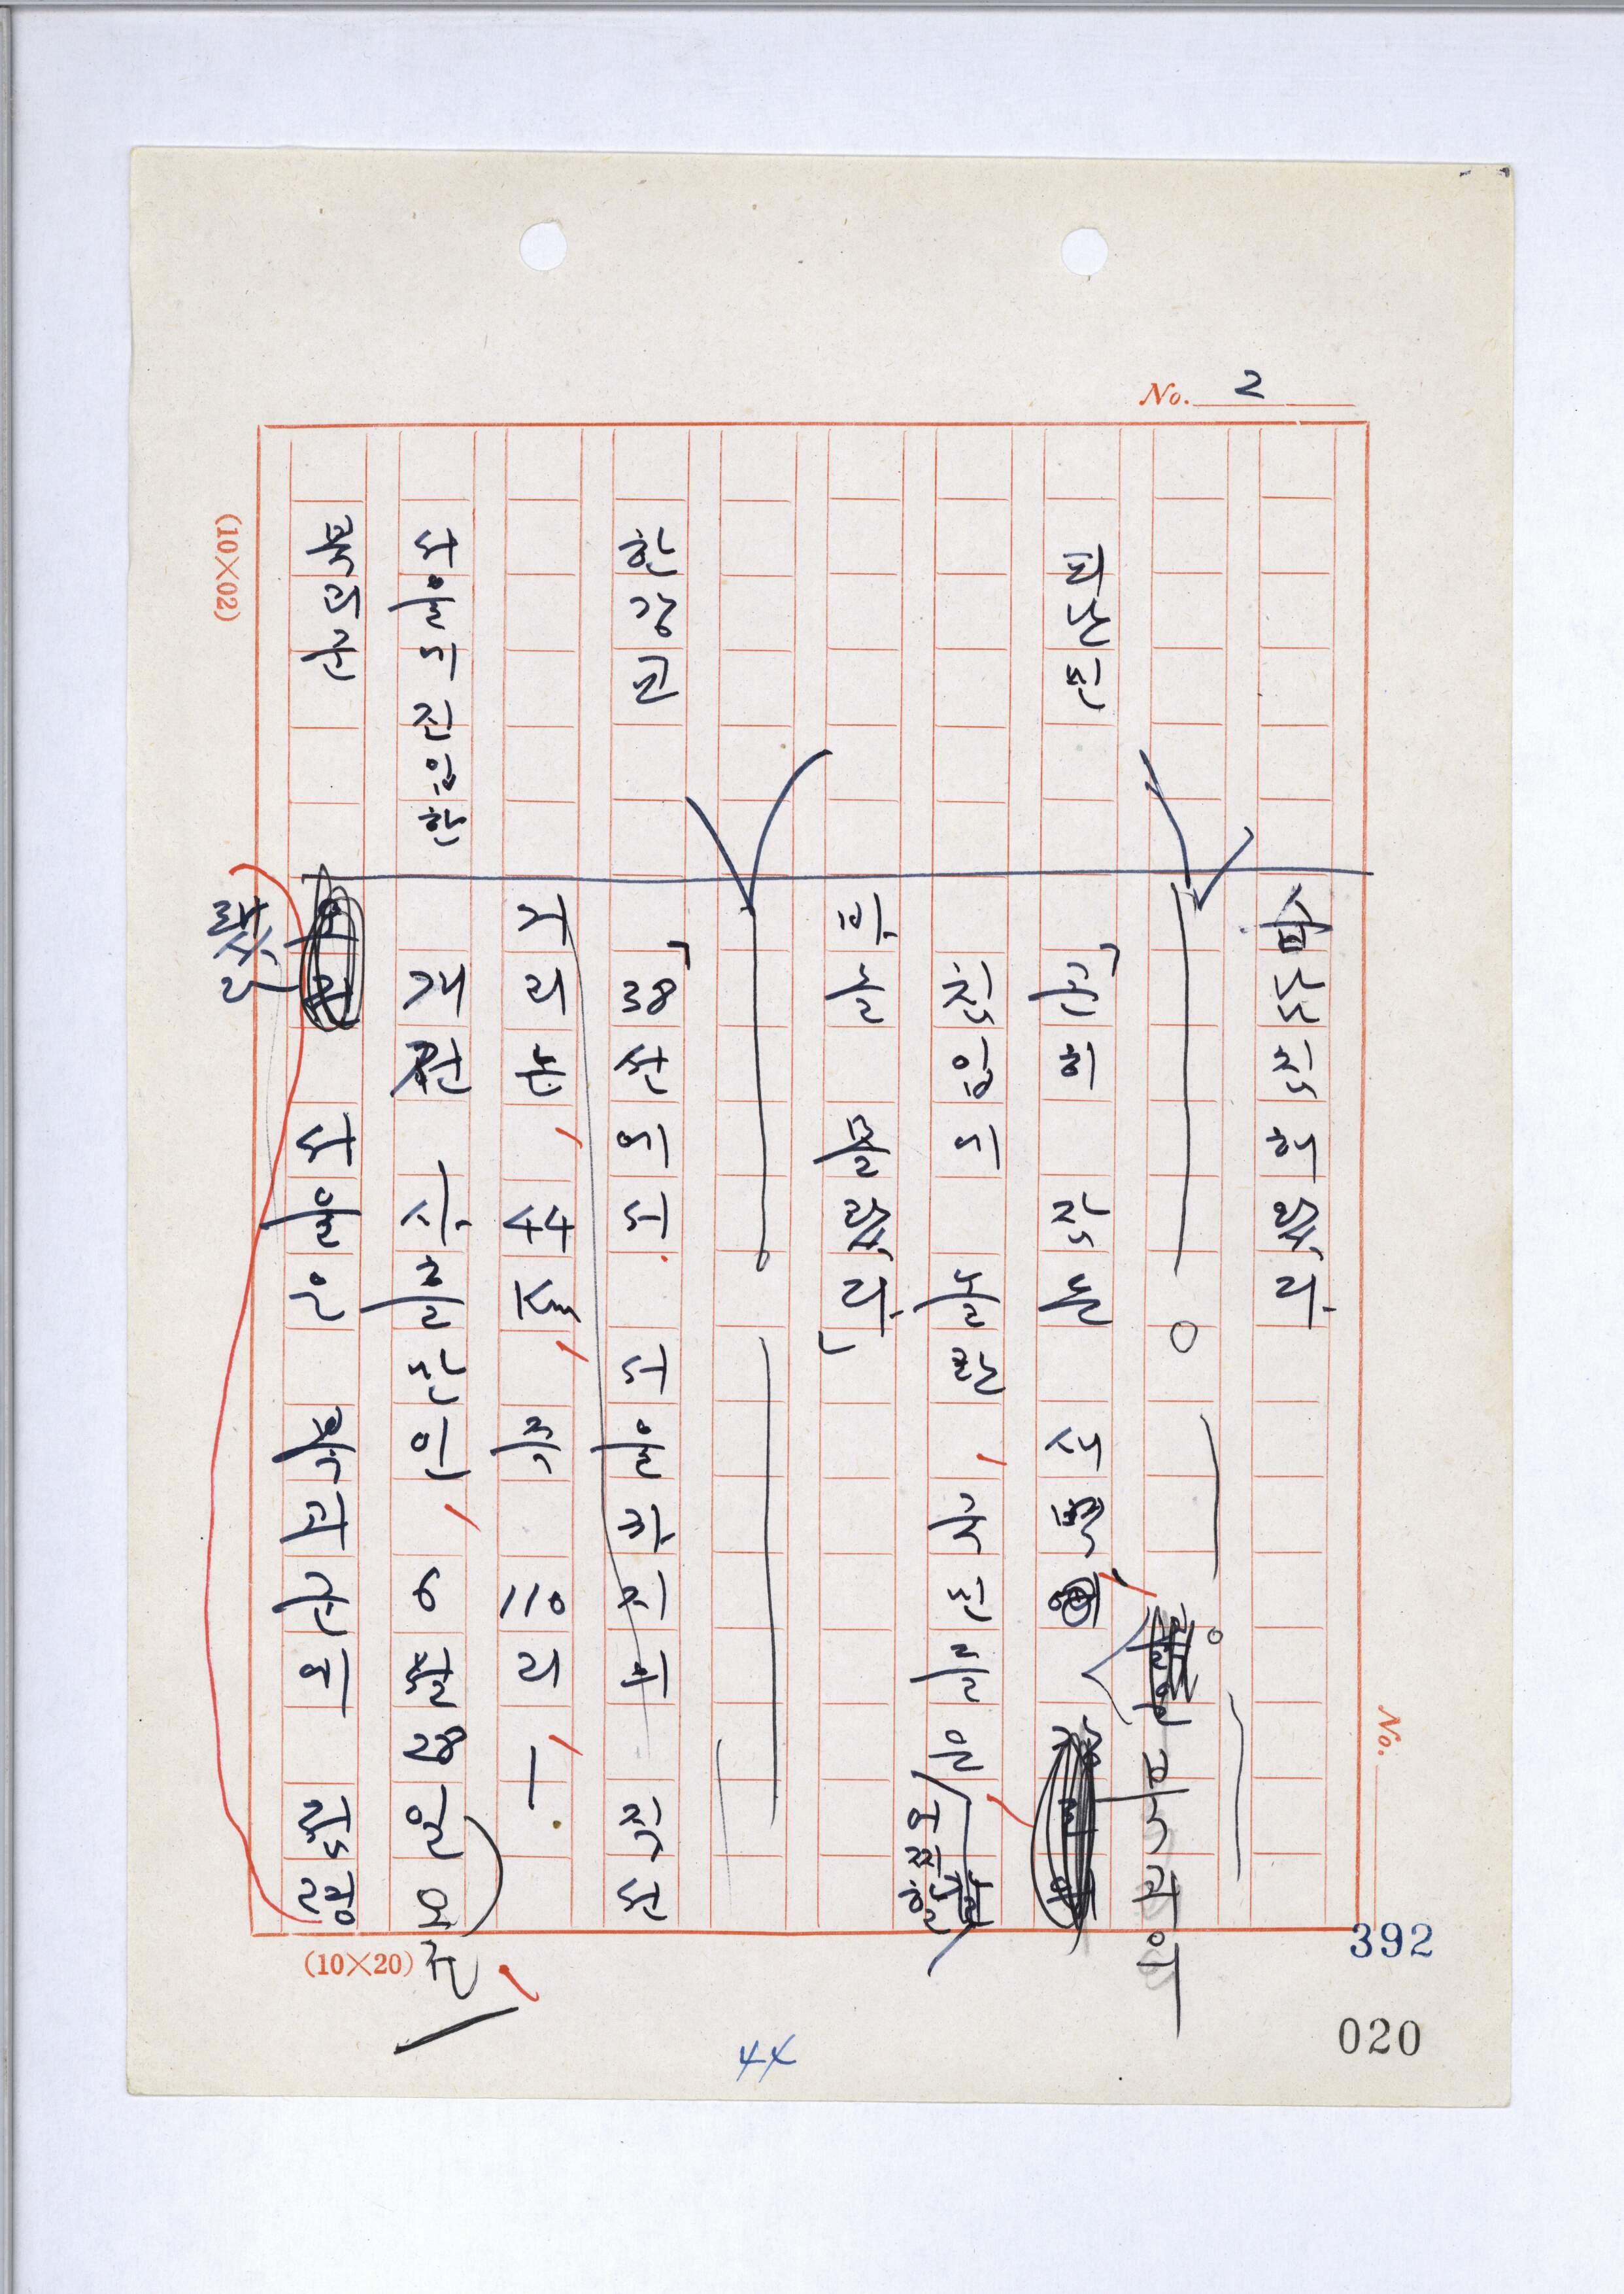 No. 2
습남침해왔다.
피난민 「곤히 잠든 새벽 북괴의
침입에 놀란, 국민들은 어찌할
바를 몰랐다.」
한강교 「38선에서 서울까지의 직선
거리는, 44Km, 즉 110리, —
서울에 진입한 개전 사흘만인, 6월 28일
북괴군 서울은 북괴군에 점령
됐다
(10×02)
(10×20)
No.
392
020
44